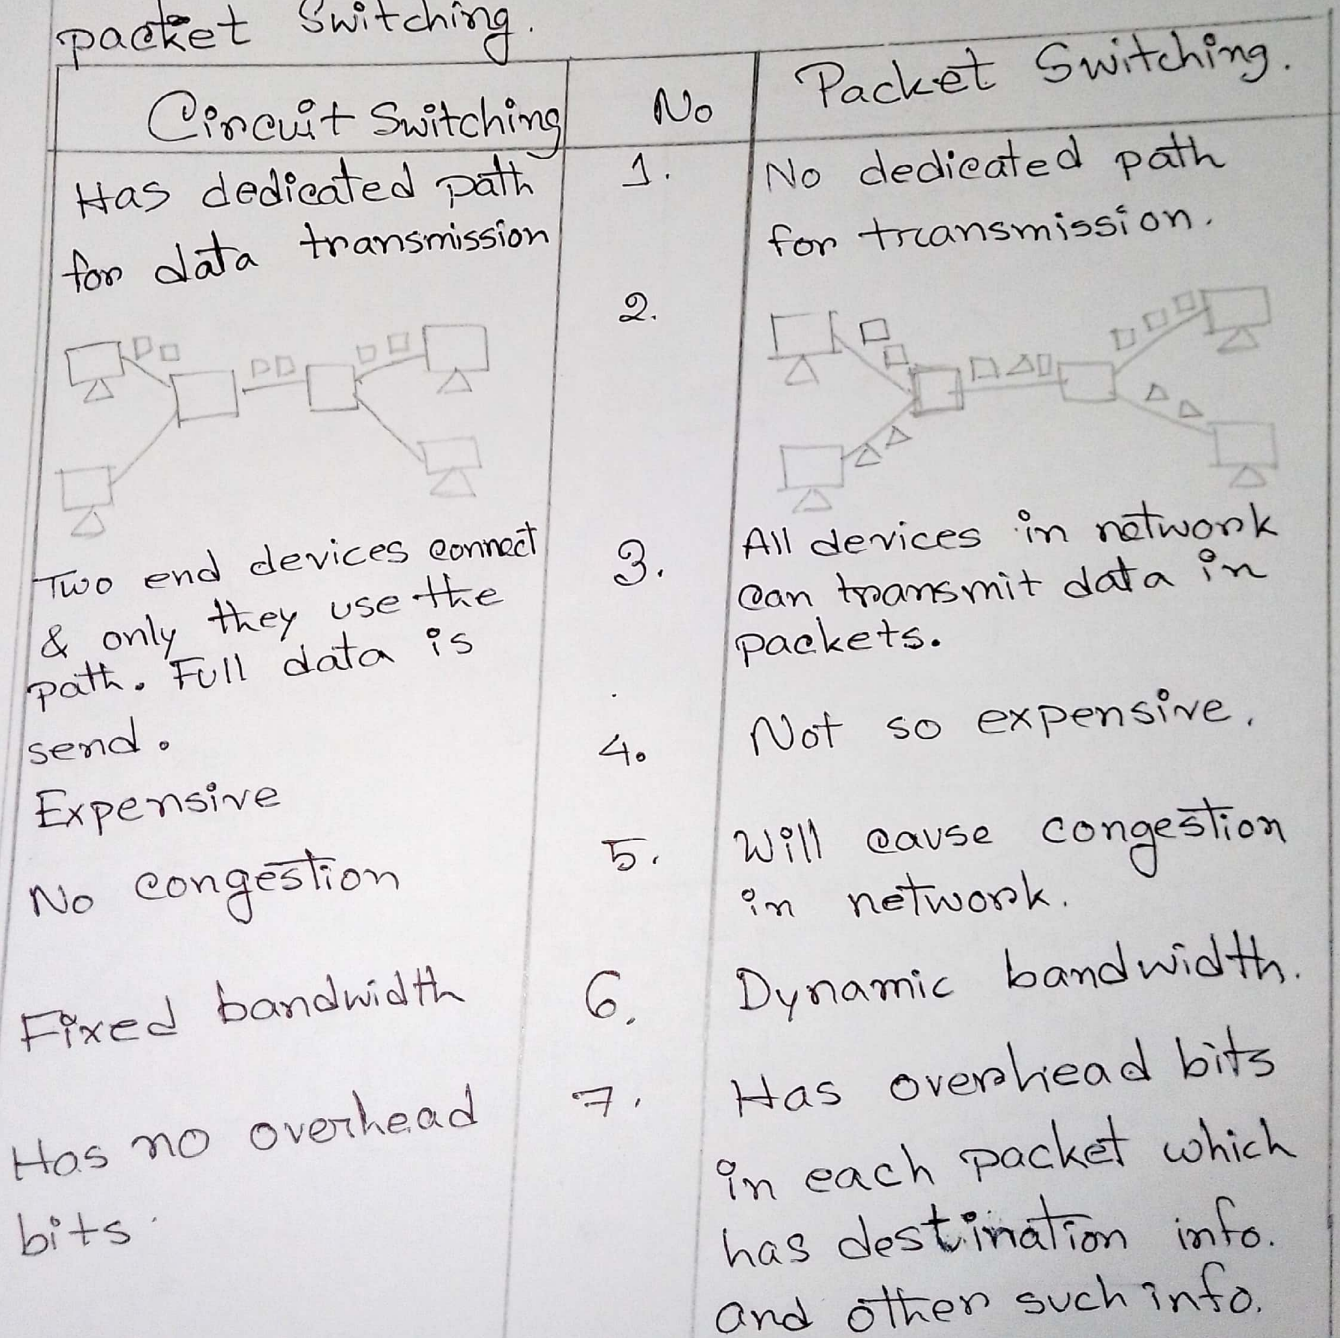 packet Switching.
Circuit Switching
No
Packet Switching.
Has dedicated path
for data transmission
1.
No dedicated path
for transmission.
2.
Two end devices connect
& only they use the
path. Full data is
send.
3.
All devices in network
can transmit data in
packets.
Expensive
4.
Not so expensive.
No congestion
5.
Will cause congestion
in network.
Fixed bandwidth
6.
Dynamic bandwidth.
Has no overhead
bits
7.
Has overhead bits
in each packet which
has destination info.
and other such info.